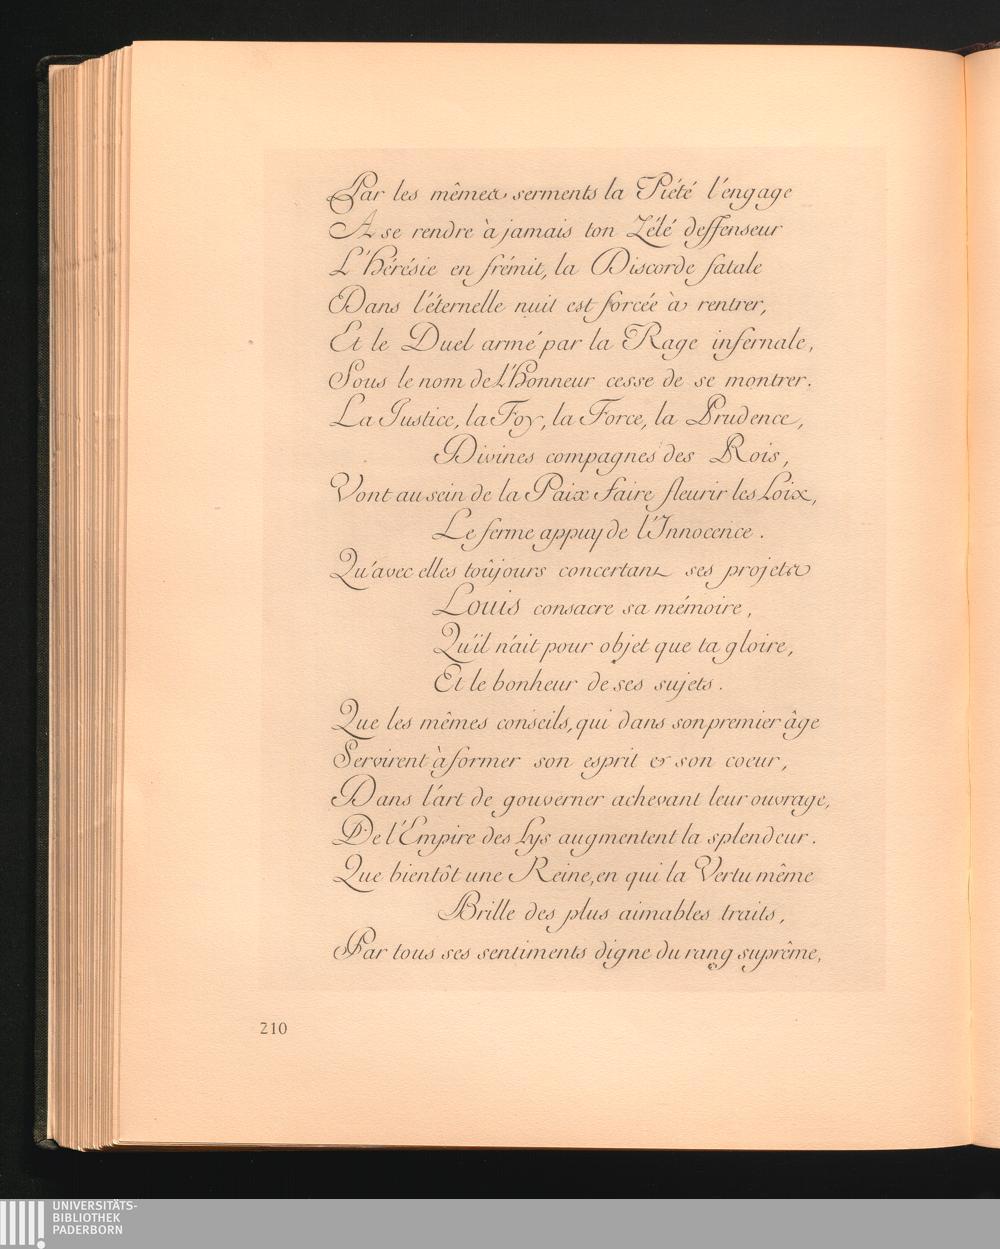 Par les mêmes serments la Piété l'engage
A se rendre à jamais ton Zélé deffenseur
L'Hérésie en frémit, la Discorde fatale
Dans l'éternelle nuit est forcée à rentrer,
Et le Duel armé par la Rage infernale,
Sous le nom de L'Honneur cesse de se montrer.
La Justice, la Foy, la Force, la Prudence,
Divines compagnes des Rois,
Vont au sein de la Paix faire fleurir les Loix,
Le ferme appuy de l'Innocence.
Qu'avec elles toûjours concertant ses projets
Louis consacre sa mémoire,
Qu'il n'ait pour objet que ta gloire,
Et le bonheur de ses sujets.
Que les mêmes conseils, qui dans son premier âge
Servirent à former son esprit & son coeur,
Dans l'art de gouverner achevant leur ouvrage,
De l'Empire des Lys augmentent la splendeur.
Que bientôt une Reine, en qui la Vertu même
Brille des plus aimables traits,
Par tous ses sentiments digne du rang suprême,
210
UNIVERSITÄTS-
BIBLIOTHEK
PADERBORN